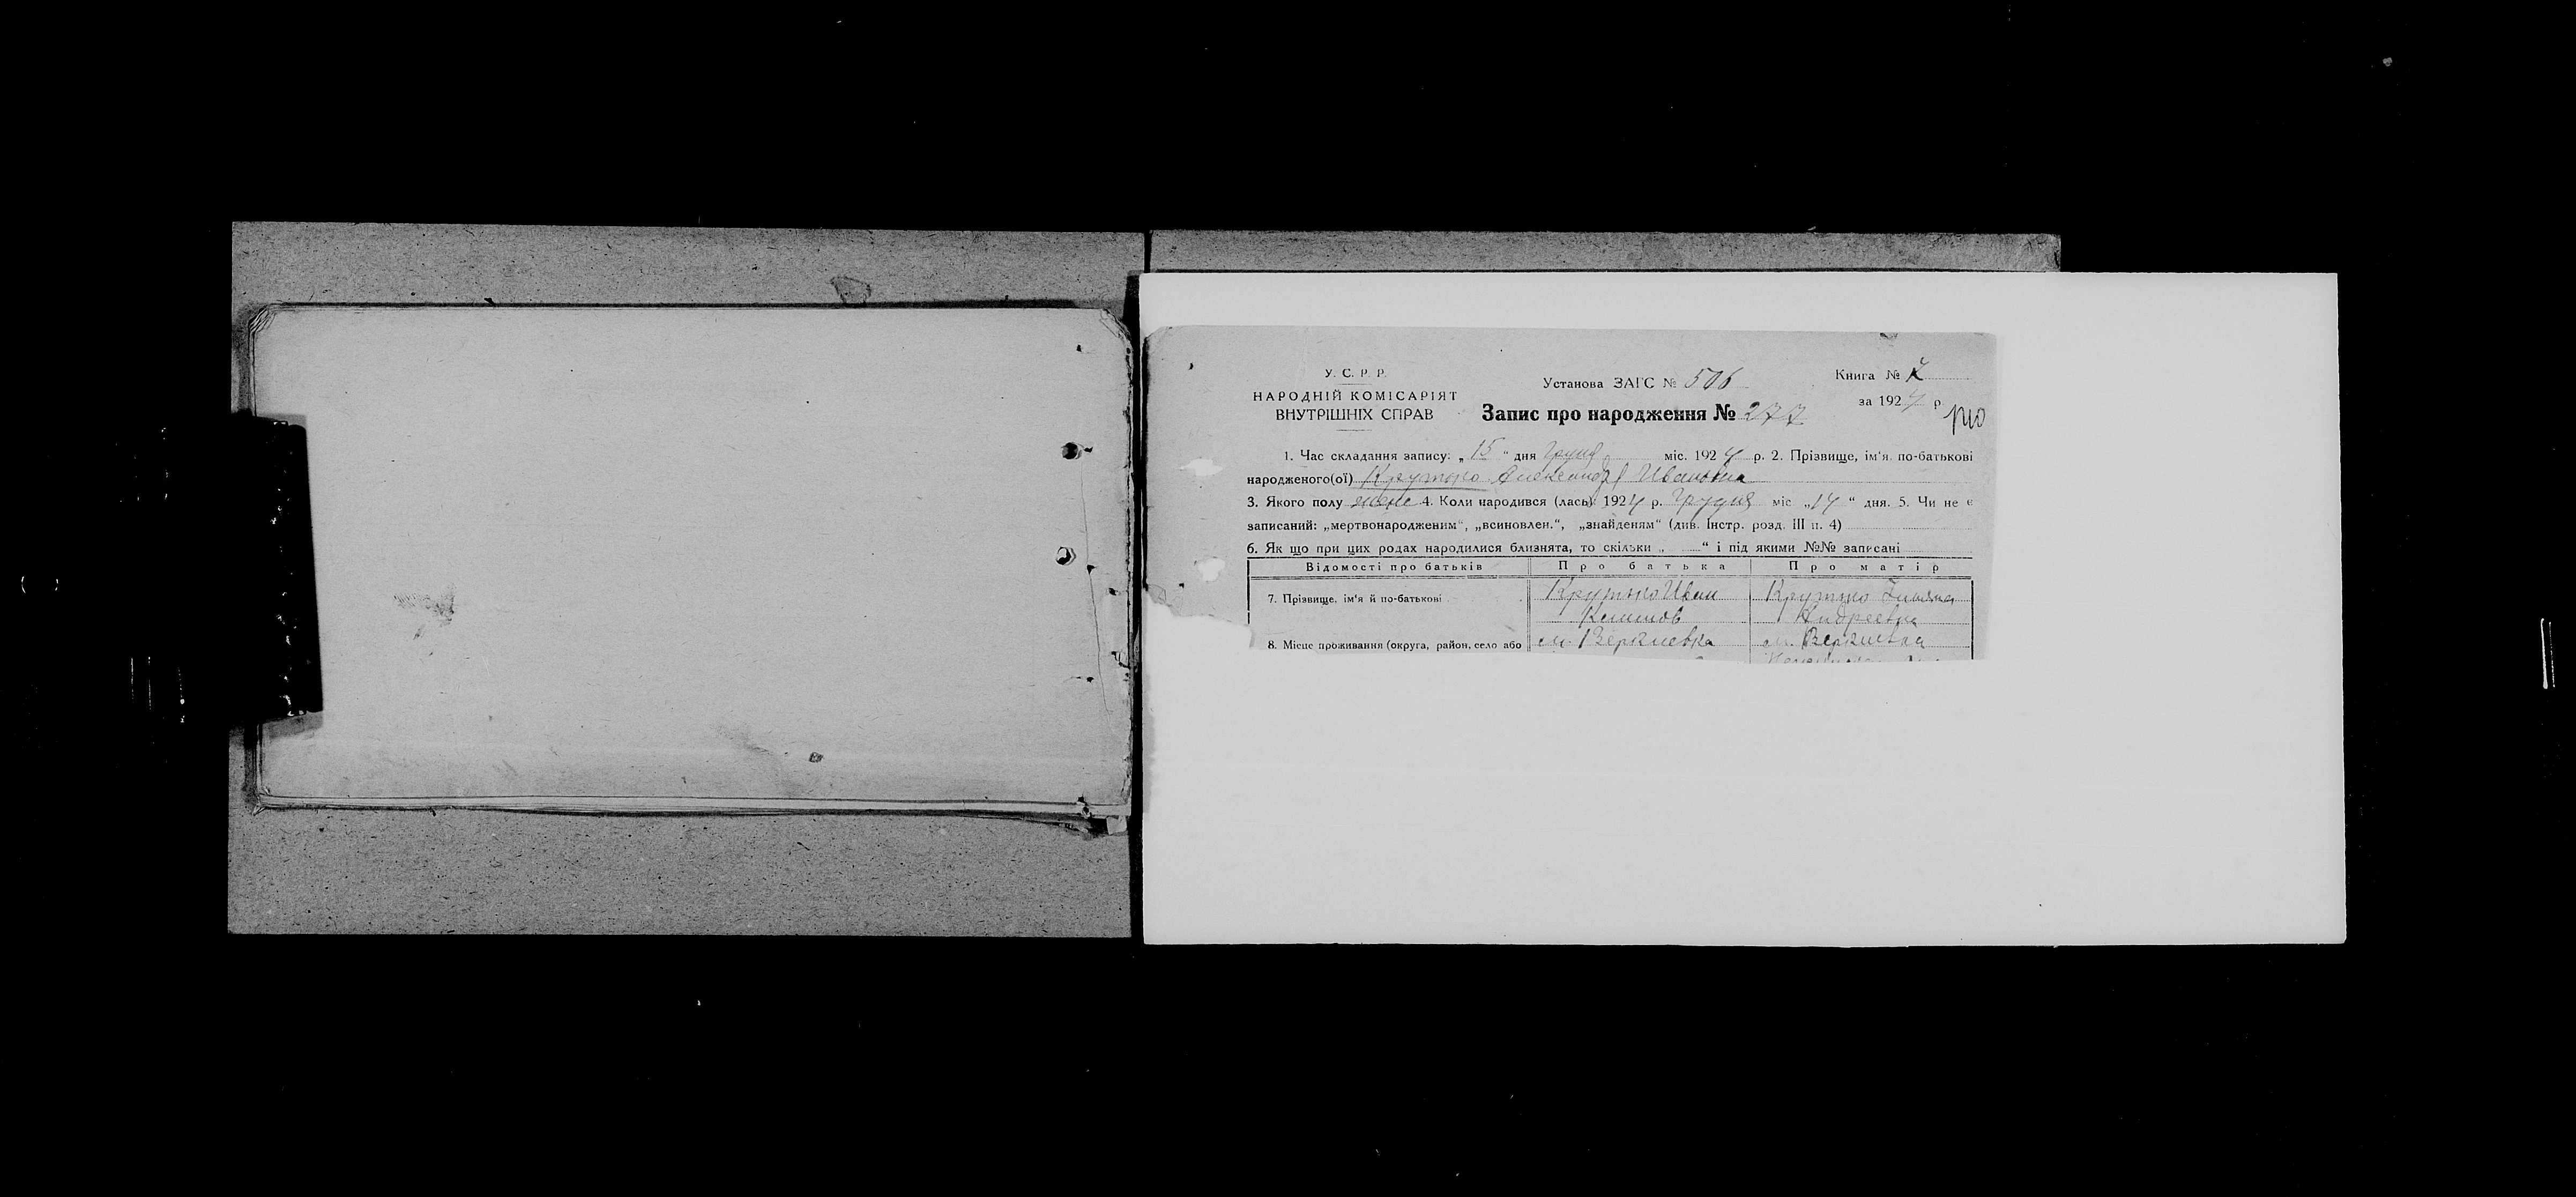 У. С. Р. Р.
НАРОДНІЙ КОМІСАРІЯТ
ВНУТРІШНІХ СПРАВ
Установа ЗАГС № 506
Запис про народження № 277
Книга №
за 1924 р.
1. Час складання запису: „ 15 “ дня міс. 1924 р. 2. Прізвище, ім'я по-батькові
народженого(ої) Крутько Александра Ивановна
3. Якого полу жене 4. Коли народився (лась) 1924 р. Грудня міс „14 “ дня. 5. Чи не є
записаний: „мертвонародженим“, „всиновлен.“, „знайденям“ (див. Інстр. розд. III п. 4)
6. Як що при цих родах народилися близнята, то скільки „ “ і під якими №№ записані
Відомості про батьків Про батька Про матір
7. Прізвище, ім'я й по-батькові Крутько Иван Крутько
Андреевна
8. Місце проживання (округа, район, село або м. Веркиевка м. Веркиевка